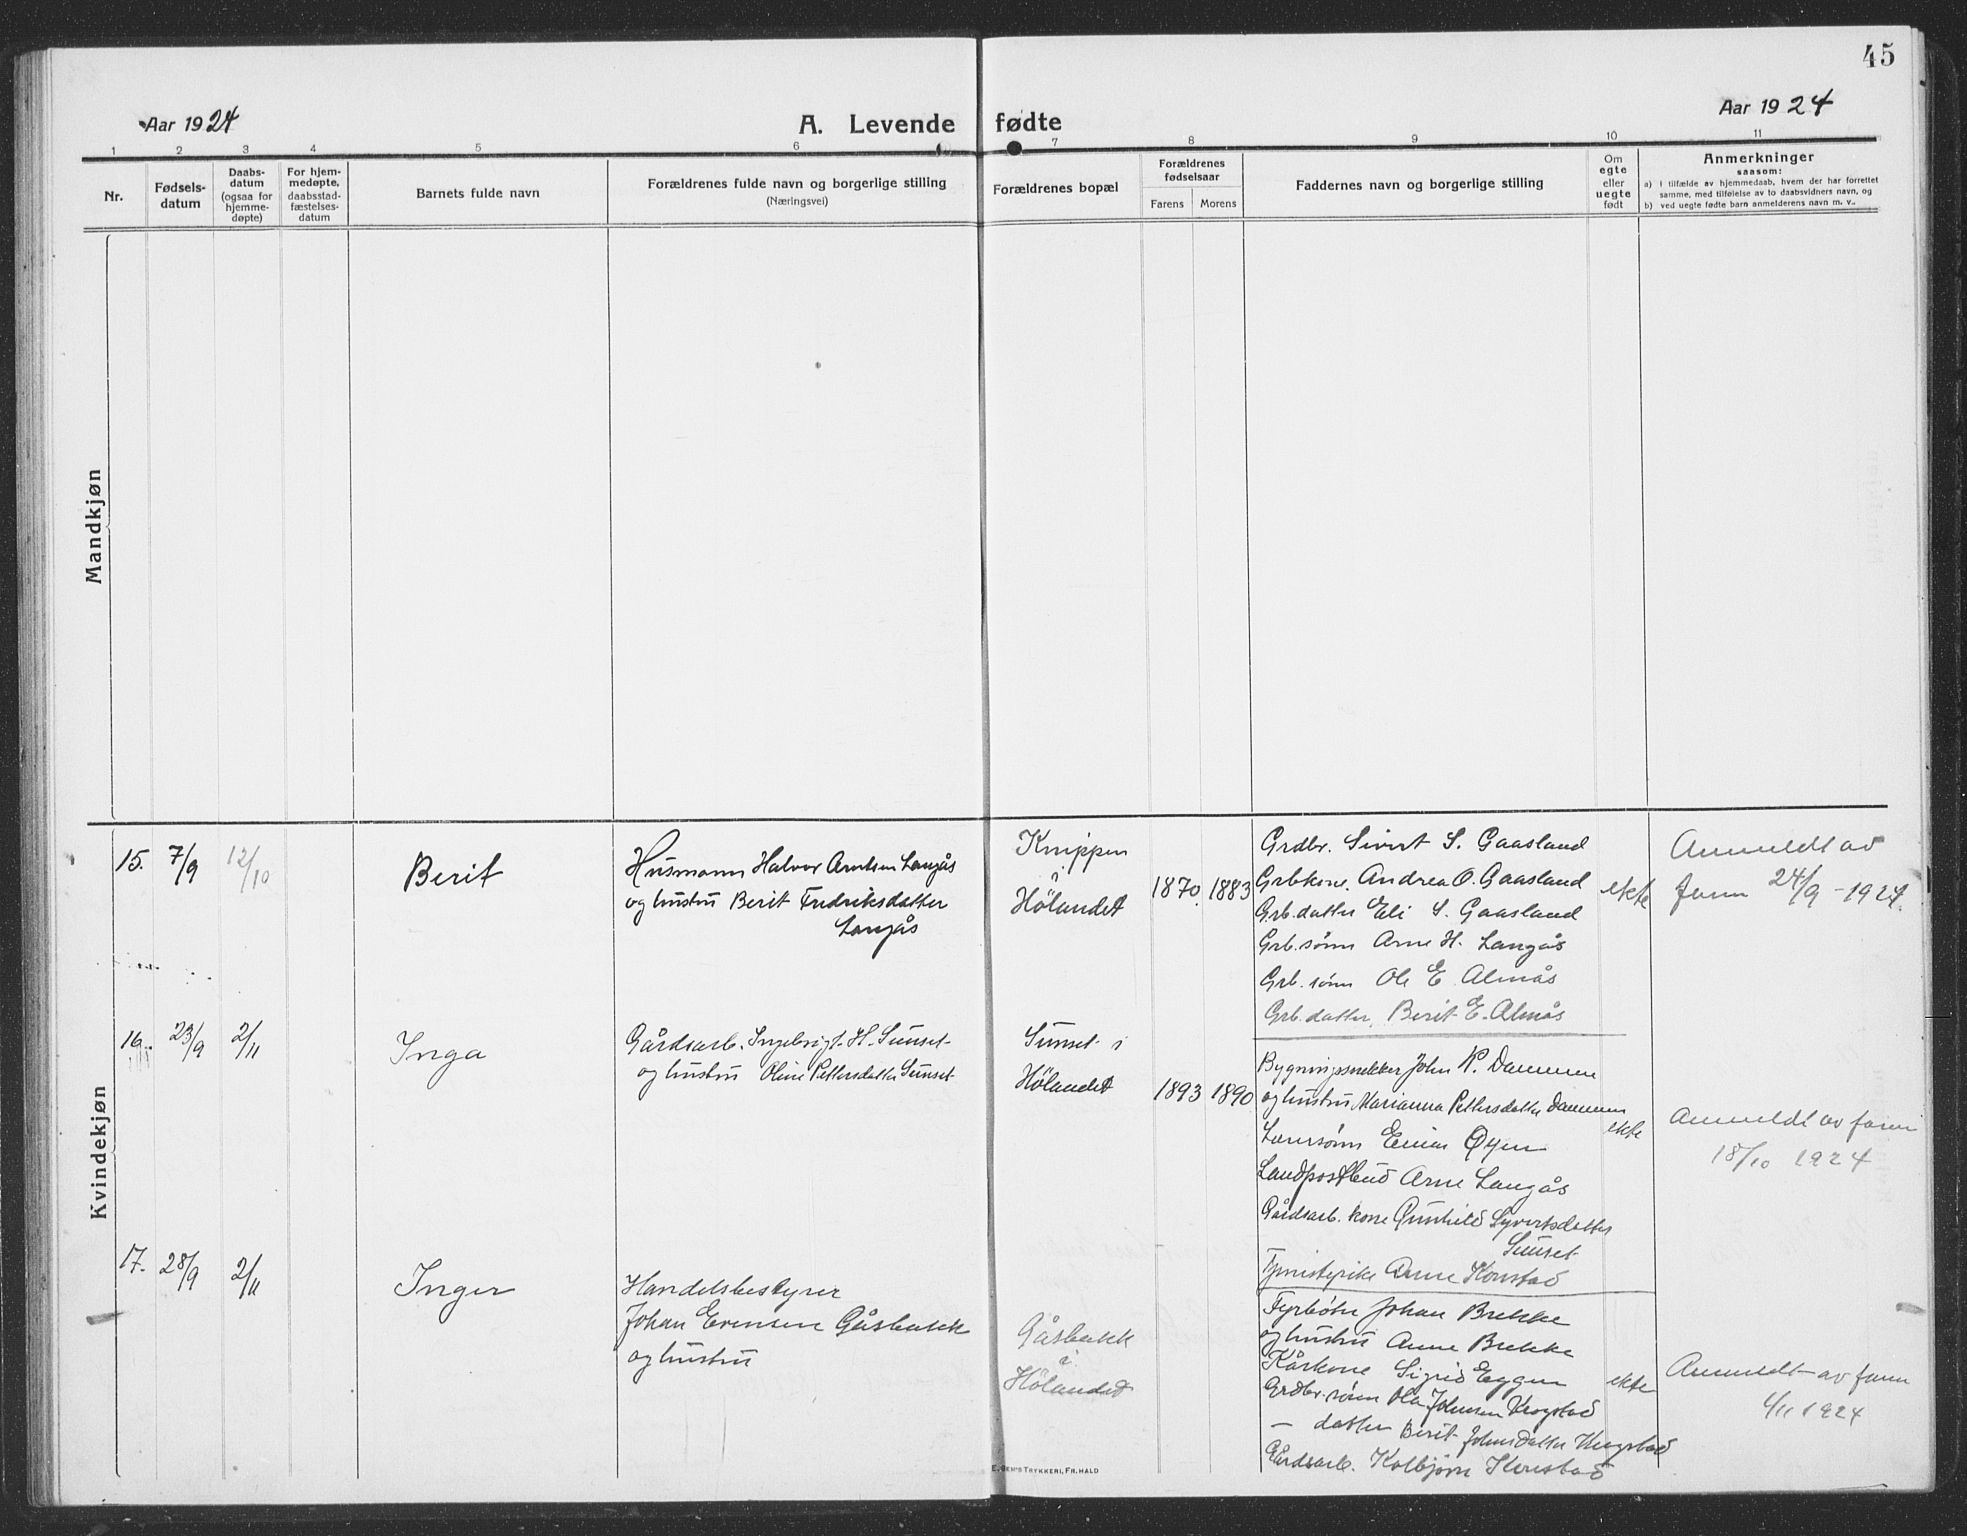 45
Aar 1924
A. Levende fødte
Aar 1924
1 2 3 4 5 6 7 8 9 10 11
Nr.
Fødsels-
datum
Daabs-
datum
(ogsaa for
hjemme-
døpte)
For hjem-
medøpte,
daabsstad-
fæstelses-
datum
Barnets fulde navn
Forældrenes fulde navn og borgerlige stilling
(Næringsvei)
Forældrenes bopæl
Forældrenes
fødselsaar
Farens Morens
Faddernes navn og borgerlige stilling
Om
egte
eller
uegte
født
Anmerkninger
saasom:
a) i tilfælde av hjemmedaab, hvem der har forrettet
samme, med tilføielse av to daabsvidners navn, og
b) ved uegte fødte barn anmelderens navn m. v..
Mandkjøn
Kvindekjøn
15. 7/9 12/10
Berit
Husmann Halvor Arntsen Langås
og hustru Berit Fredriksdatter
Langås
Knippen
i
Hölandet
1870. 1883
Grdbr. Sivert S. Gaasland
Grbkone. Andrea O. Gaasland
Grb.datter Eli S. Gaasland
Grb.sønn Arne H. Langås
Grb.sønn Ole E. Almås
Grb.datter, Berit E. Almås
ekte
Anmeldt av
faren 24/9-1924.
16. 23/9 2/11
Inga
Gårdsarb. Ingebrigt. H. Sunset
og hustru Oline Pettersdatter Sunset
Sunset i
Hölandet
1893 1890
John P. Dammen
og hustru Marianna Pettersdatter Dammen
Einar Øyen
Landpostbud Arne Langås
Gårdsarb. kone Gunhild Syvertsdatter
Sunset
Tjenestepike Anne Konstad
ekte
Anmeldt av faren
18/10 1924
17. 28/9 2/11
Inger
Handelsbestyrer
Johan Evensen Gåsbakk
og hustru
Gåsbakk
i
Hölandet
Fyrbøter Johan Brekke
og hustru Anne Brekke
Kårkone Sigrid Eggen
Grdbr.sønn Ola Johnsen Krogstad
— datter Berit Johnsdatter Krogstad
Gårdsarb. Kolbjørn Konstad
ekte
Anmeldt av faren
1/11 1924
TRYKKERI, FR. HALD